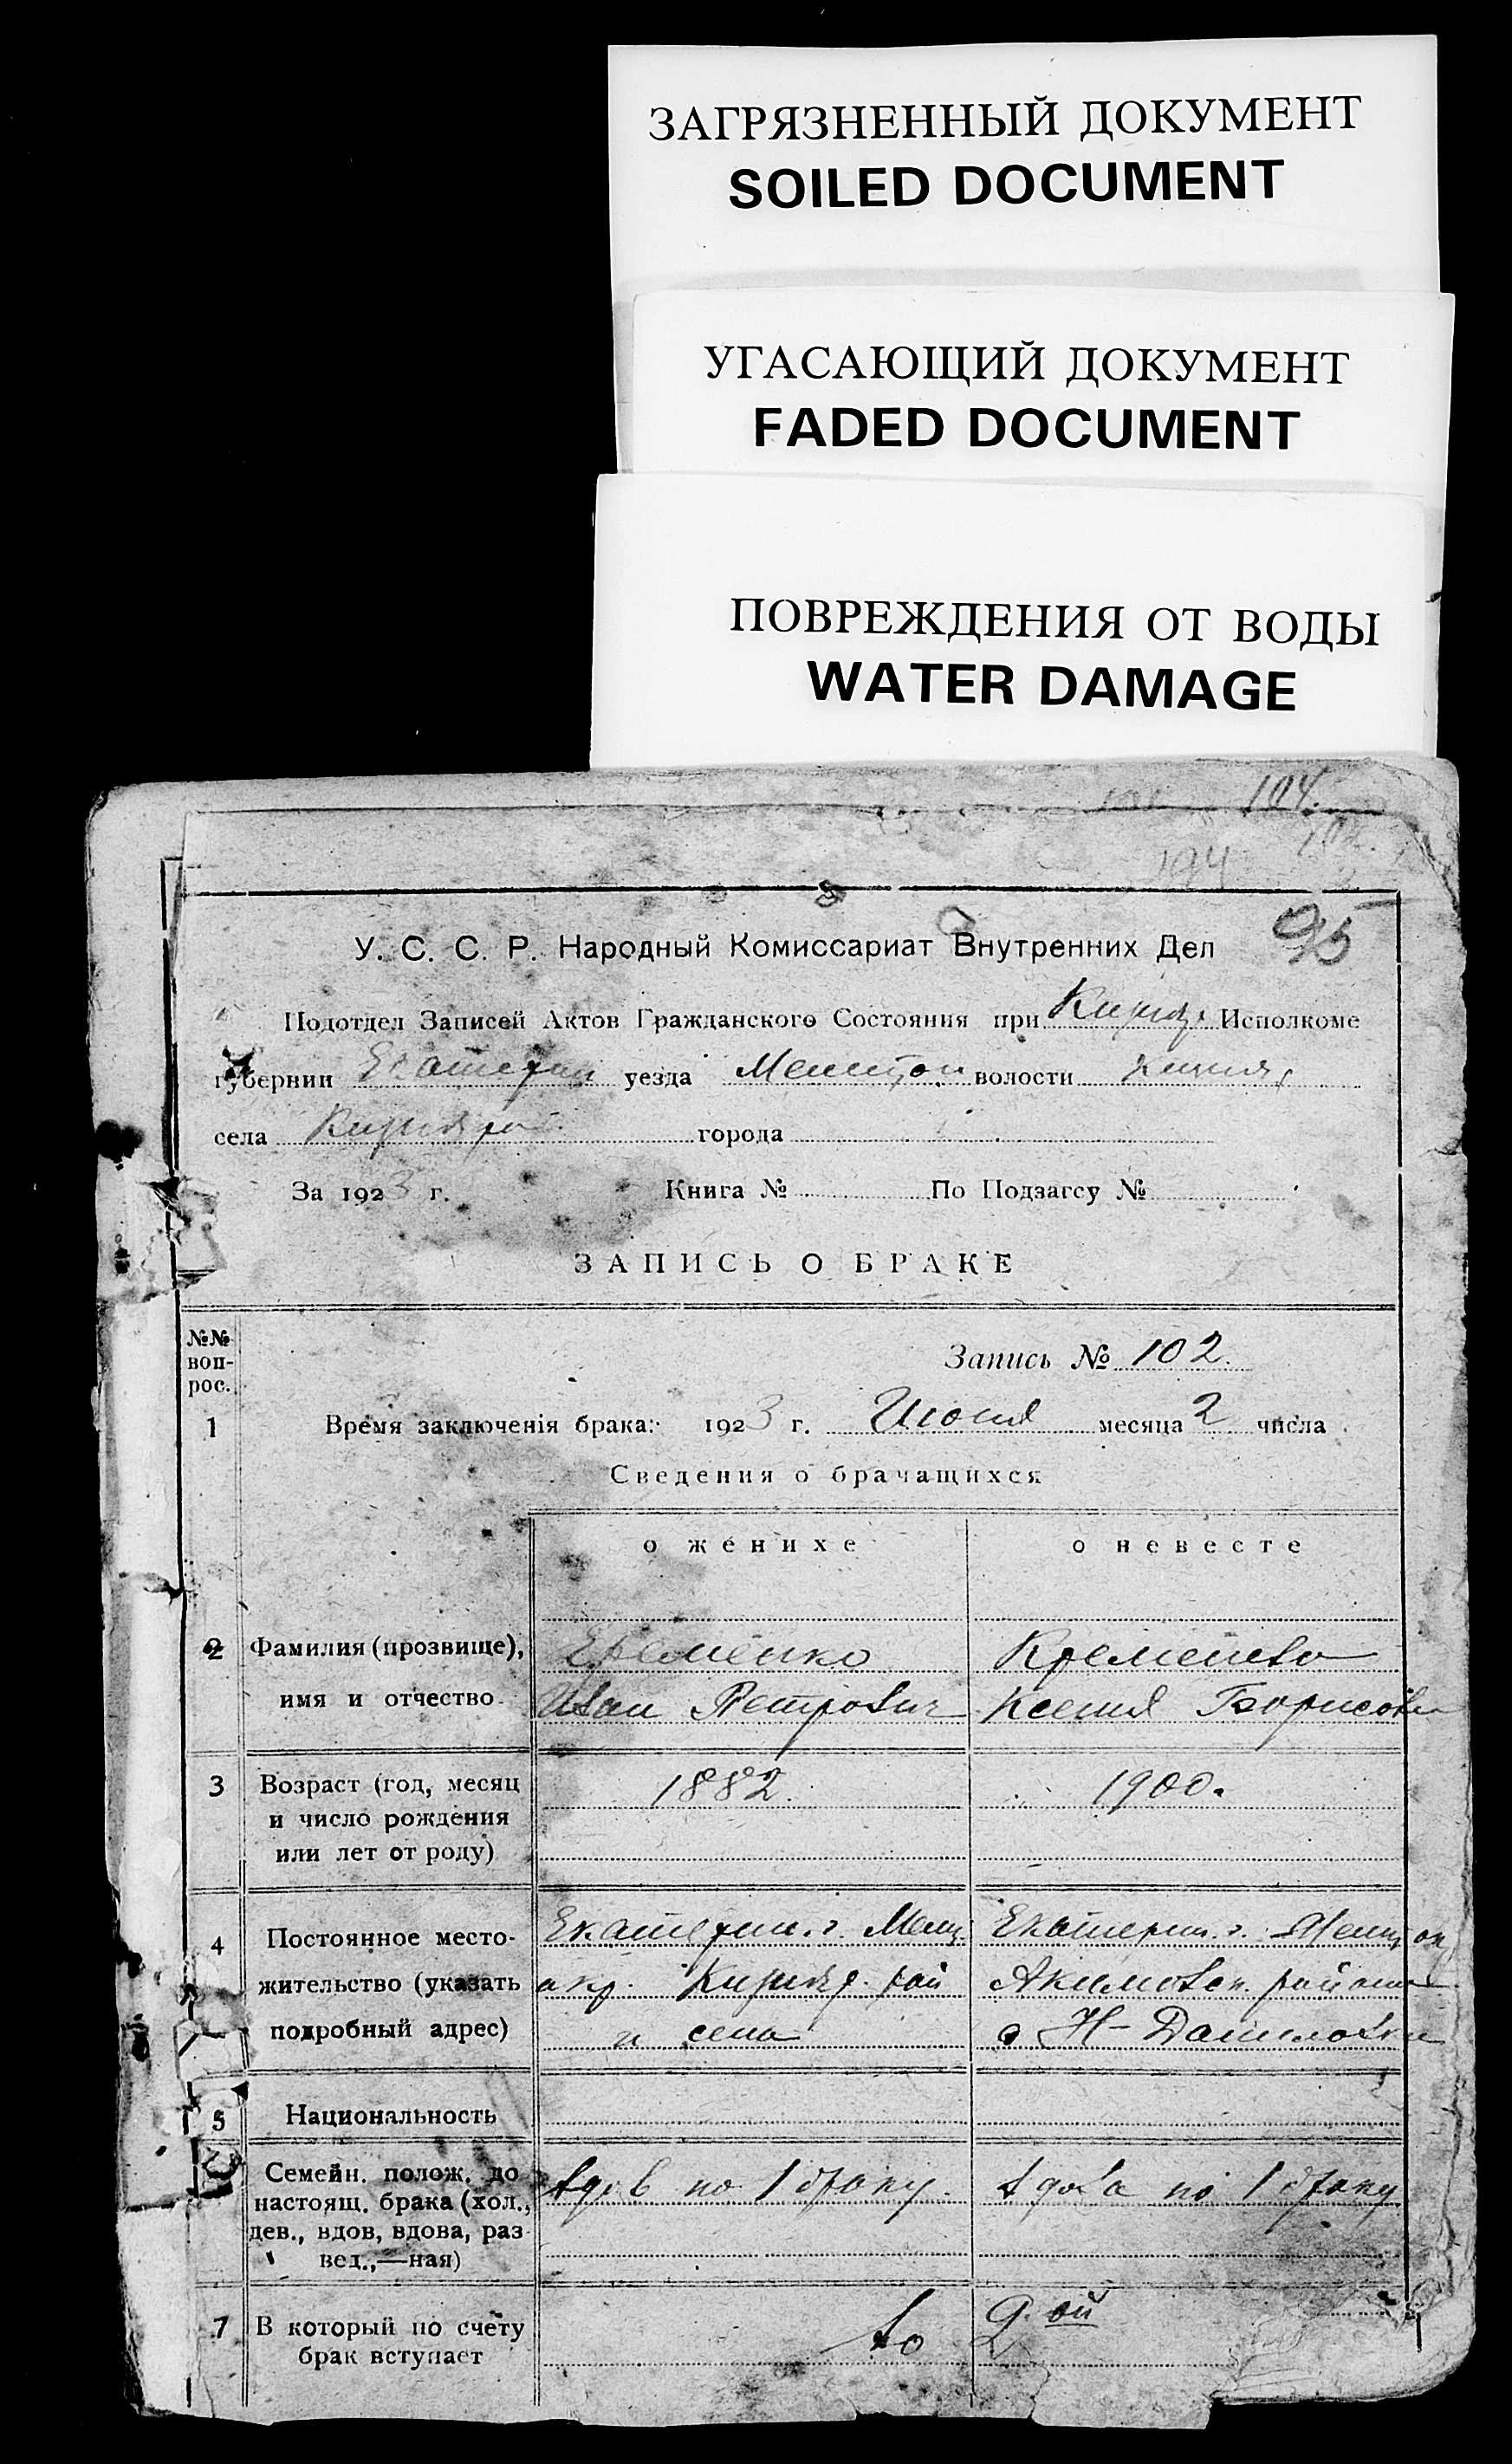 ЗАГРЯЗНЕННЫЙ ДОКУМЕНТ
SOILED DOCUMENT
УГАСАЮЩИЙ ДОКУМЕНТ
FADED DOCUMENT
ПОВРЕЖДЕНИЯ ОТ ВОДЫ
WATER DAMAGE
104.
194
95
У. С. С. Р. Народный Комиссариат Внутренних Дел
Подотдел Записей Актов Гражданского Состояния при Исполкоме
губернии Екатерин уезда волости
села города
За 1923 г. Книга № По Подзагсу №
ЗАПИСЬ О БРАКЕ
№№ воп- рос.
Запись № 102.
1 Время заключенія брака: 1923 г. Июня месяца 2 числа
Сведения о брачащихся
о женихе о невесте
2 Фамилия (прозвище), Еременко
имя и отчество Иван Петрович Ксения Борисовн
3 Возраст (год, месяц 1882. 1900.
и число рождения
или лет от роду)
4 Постоянное место- Екатерин. г. Мелит Екатерин. г. Мелит ок
жительство (указать окр. рай Акимовск. района
подробный адрес) и села с Н-Даниловки
5 Национальность
Семейн. полож. до вдов по 1 браку. вдова по 1 браку
настоящ. брака (хол.,
дев., вдов, вдова, раз-
вед.,—ная)
7 В который по счету во 2 ой
брак вступает